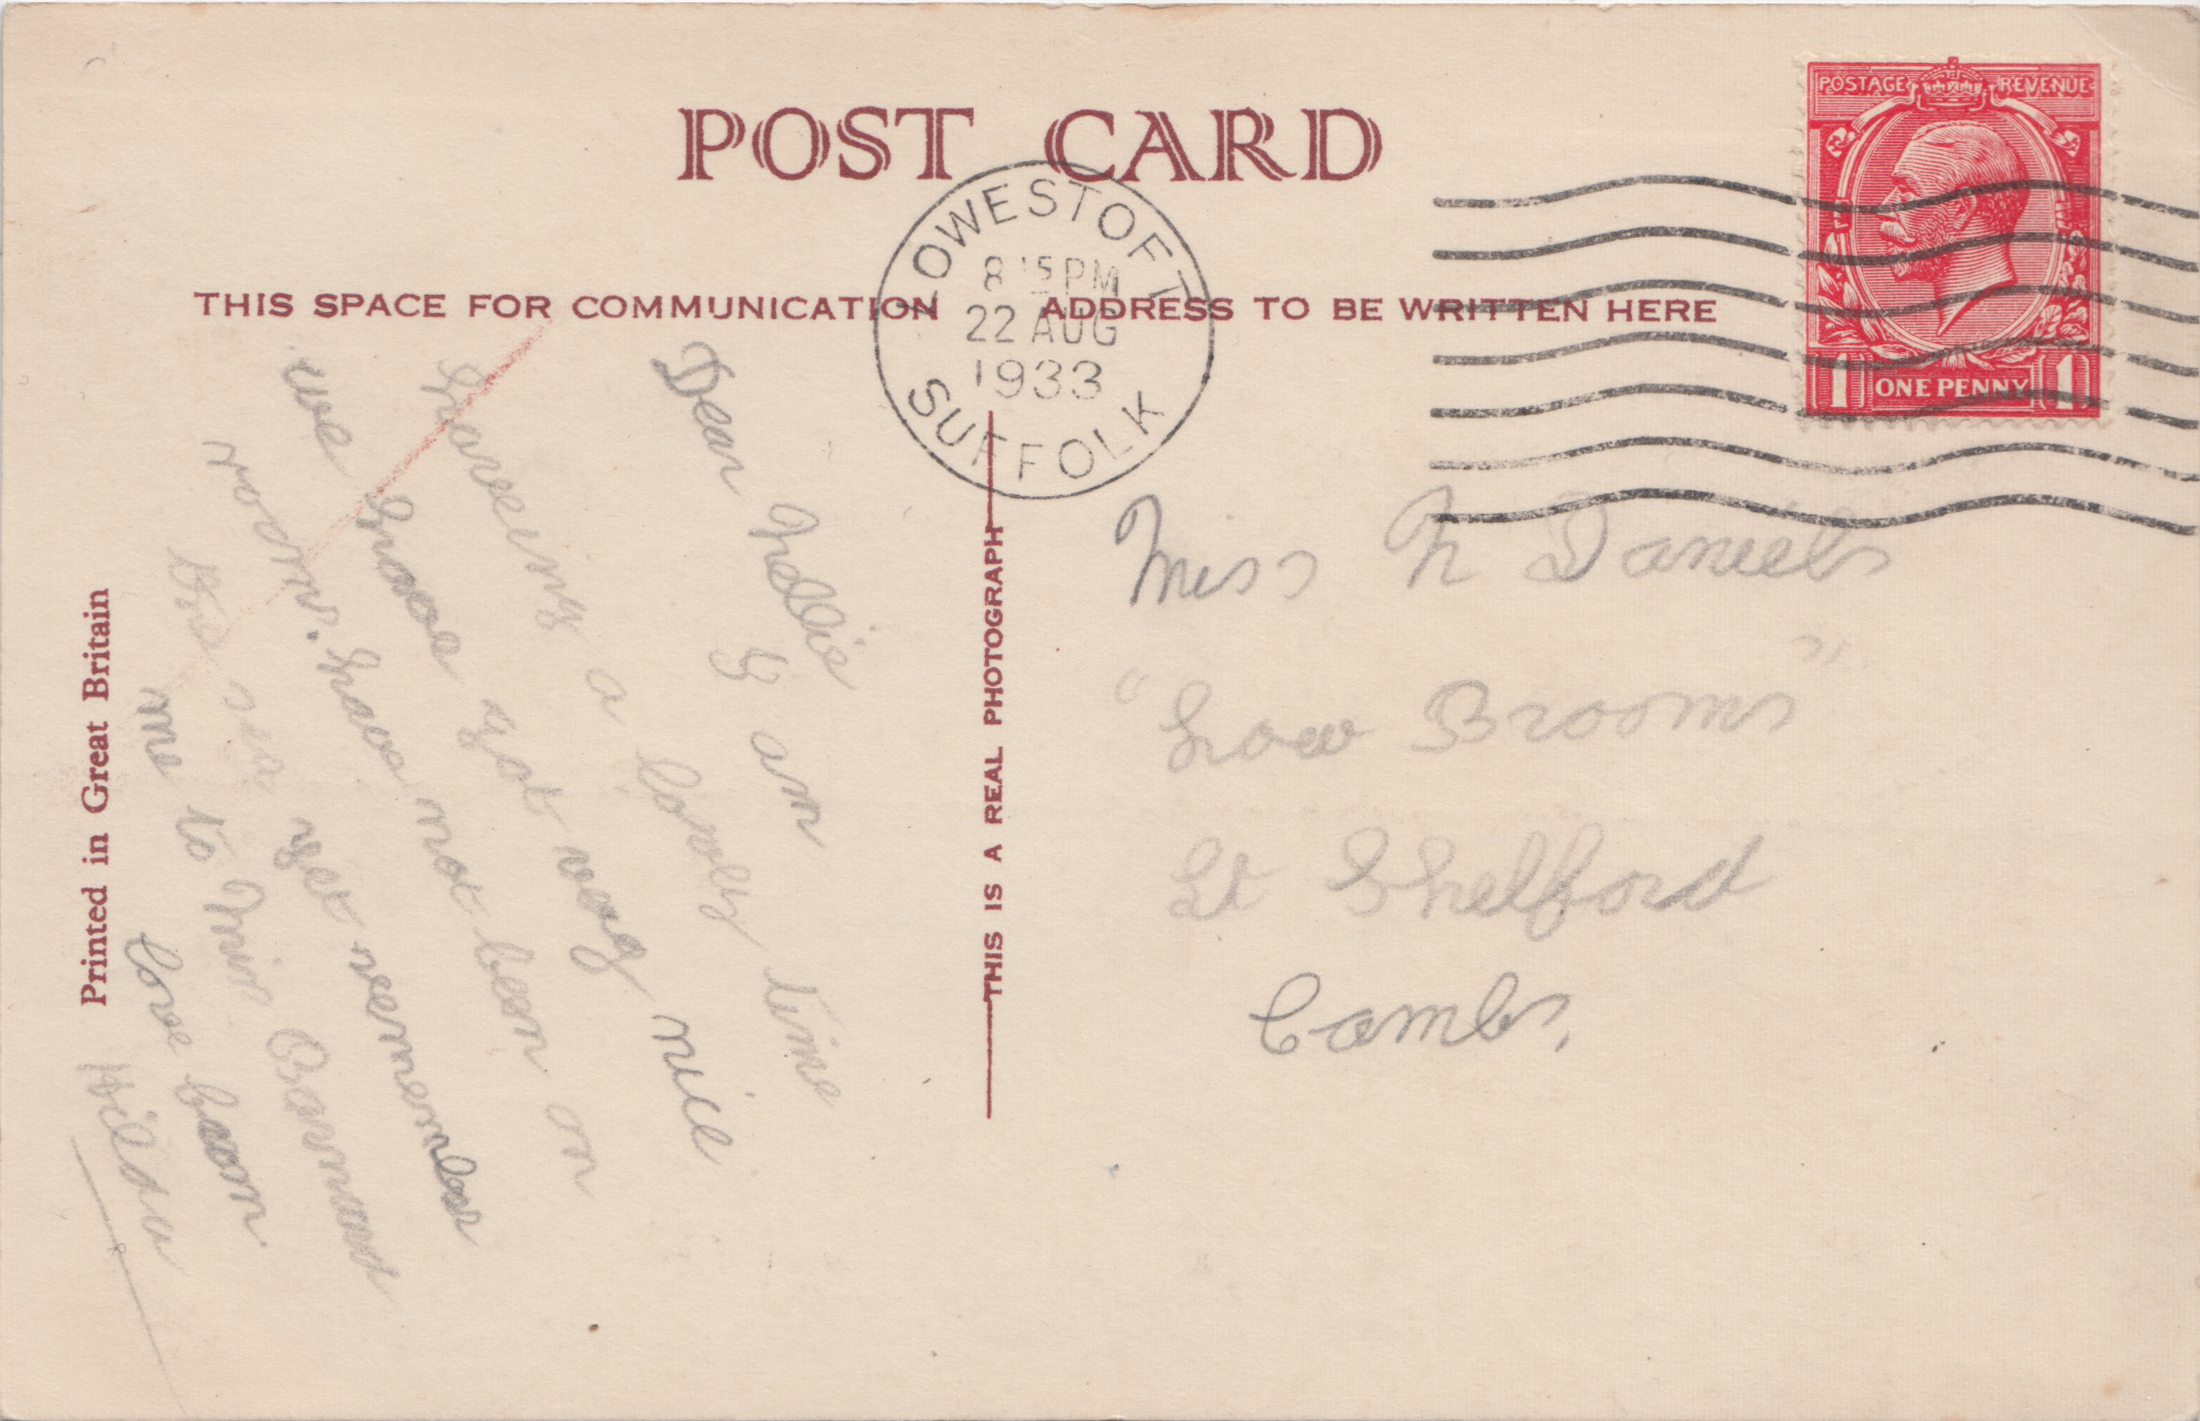 POST CARD
THIS SPACE FOR COMMUNICATION
ADDRESS TO BE WRITTEN HERE
POSTAGE REVENUE
1 ONE PENNY 1
LOWESTOFT
8 15 PM
22 AUG
1933
SUFFOLK
Dear Nellie
I am
haveing a lovely time
we have got very nice
room. have not been on
the sea yet remember
me to Mrs
love from
Hilda
Printed in Great Britain
THIS IS A REAL PHOTOGRAPH
Miss N Daniels
"Low Brooms"
Lt Shelford
Cambs,